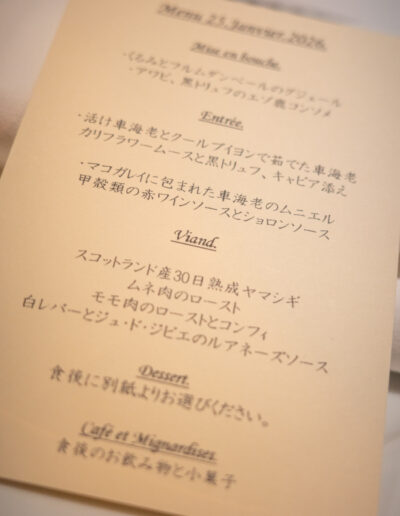 Menu 25.Janvier.2026.
Mise en bouche.
・くるみとフルムダンベールのグジェール
・アワビ、黒トリュフのエゾ鹿コンソメ
Entrée.
・活け車海老とクールブイヨンで茹でた車海老
カリフラワームースと黒トリュフ、キャビア添え
・マコガレイに包まれた車海老のムニエル
甲殻類の赤ワインソースとショロンソース
Viand.
スコットランド産30日熟成ヤマシギ
ムネ肉のロースト
モモ肉のローストとコンフィ
白レバーとジュ・ド・ジビエのルアネーズソース
Dessert.
食後に別紙よりお選びください。
Café et Mignardises.
食後のお飲み物と小菓子